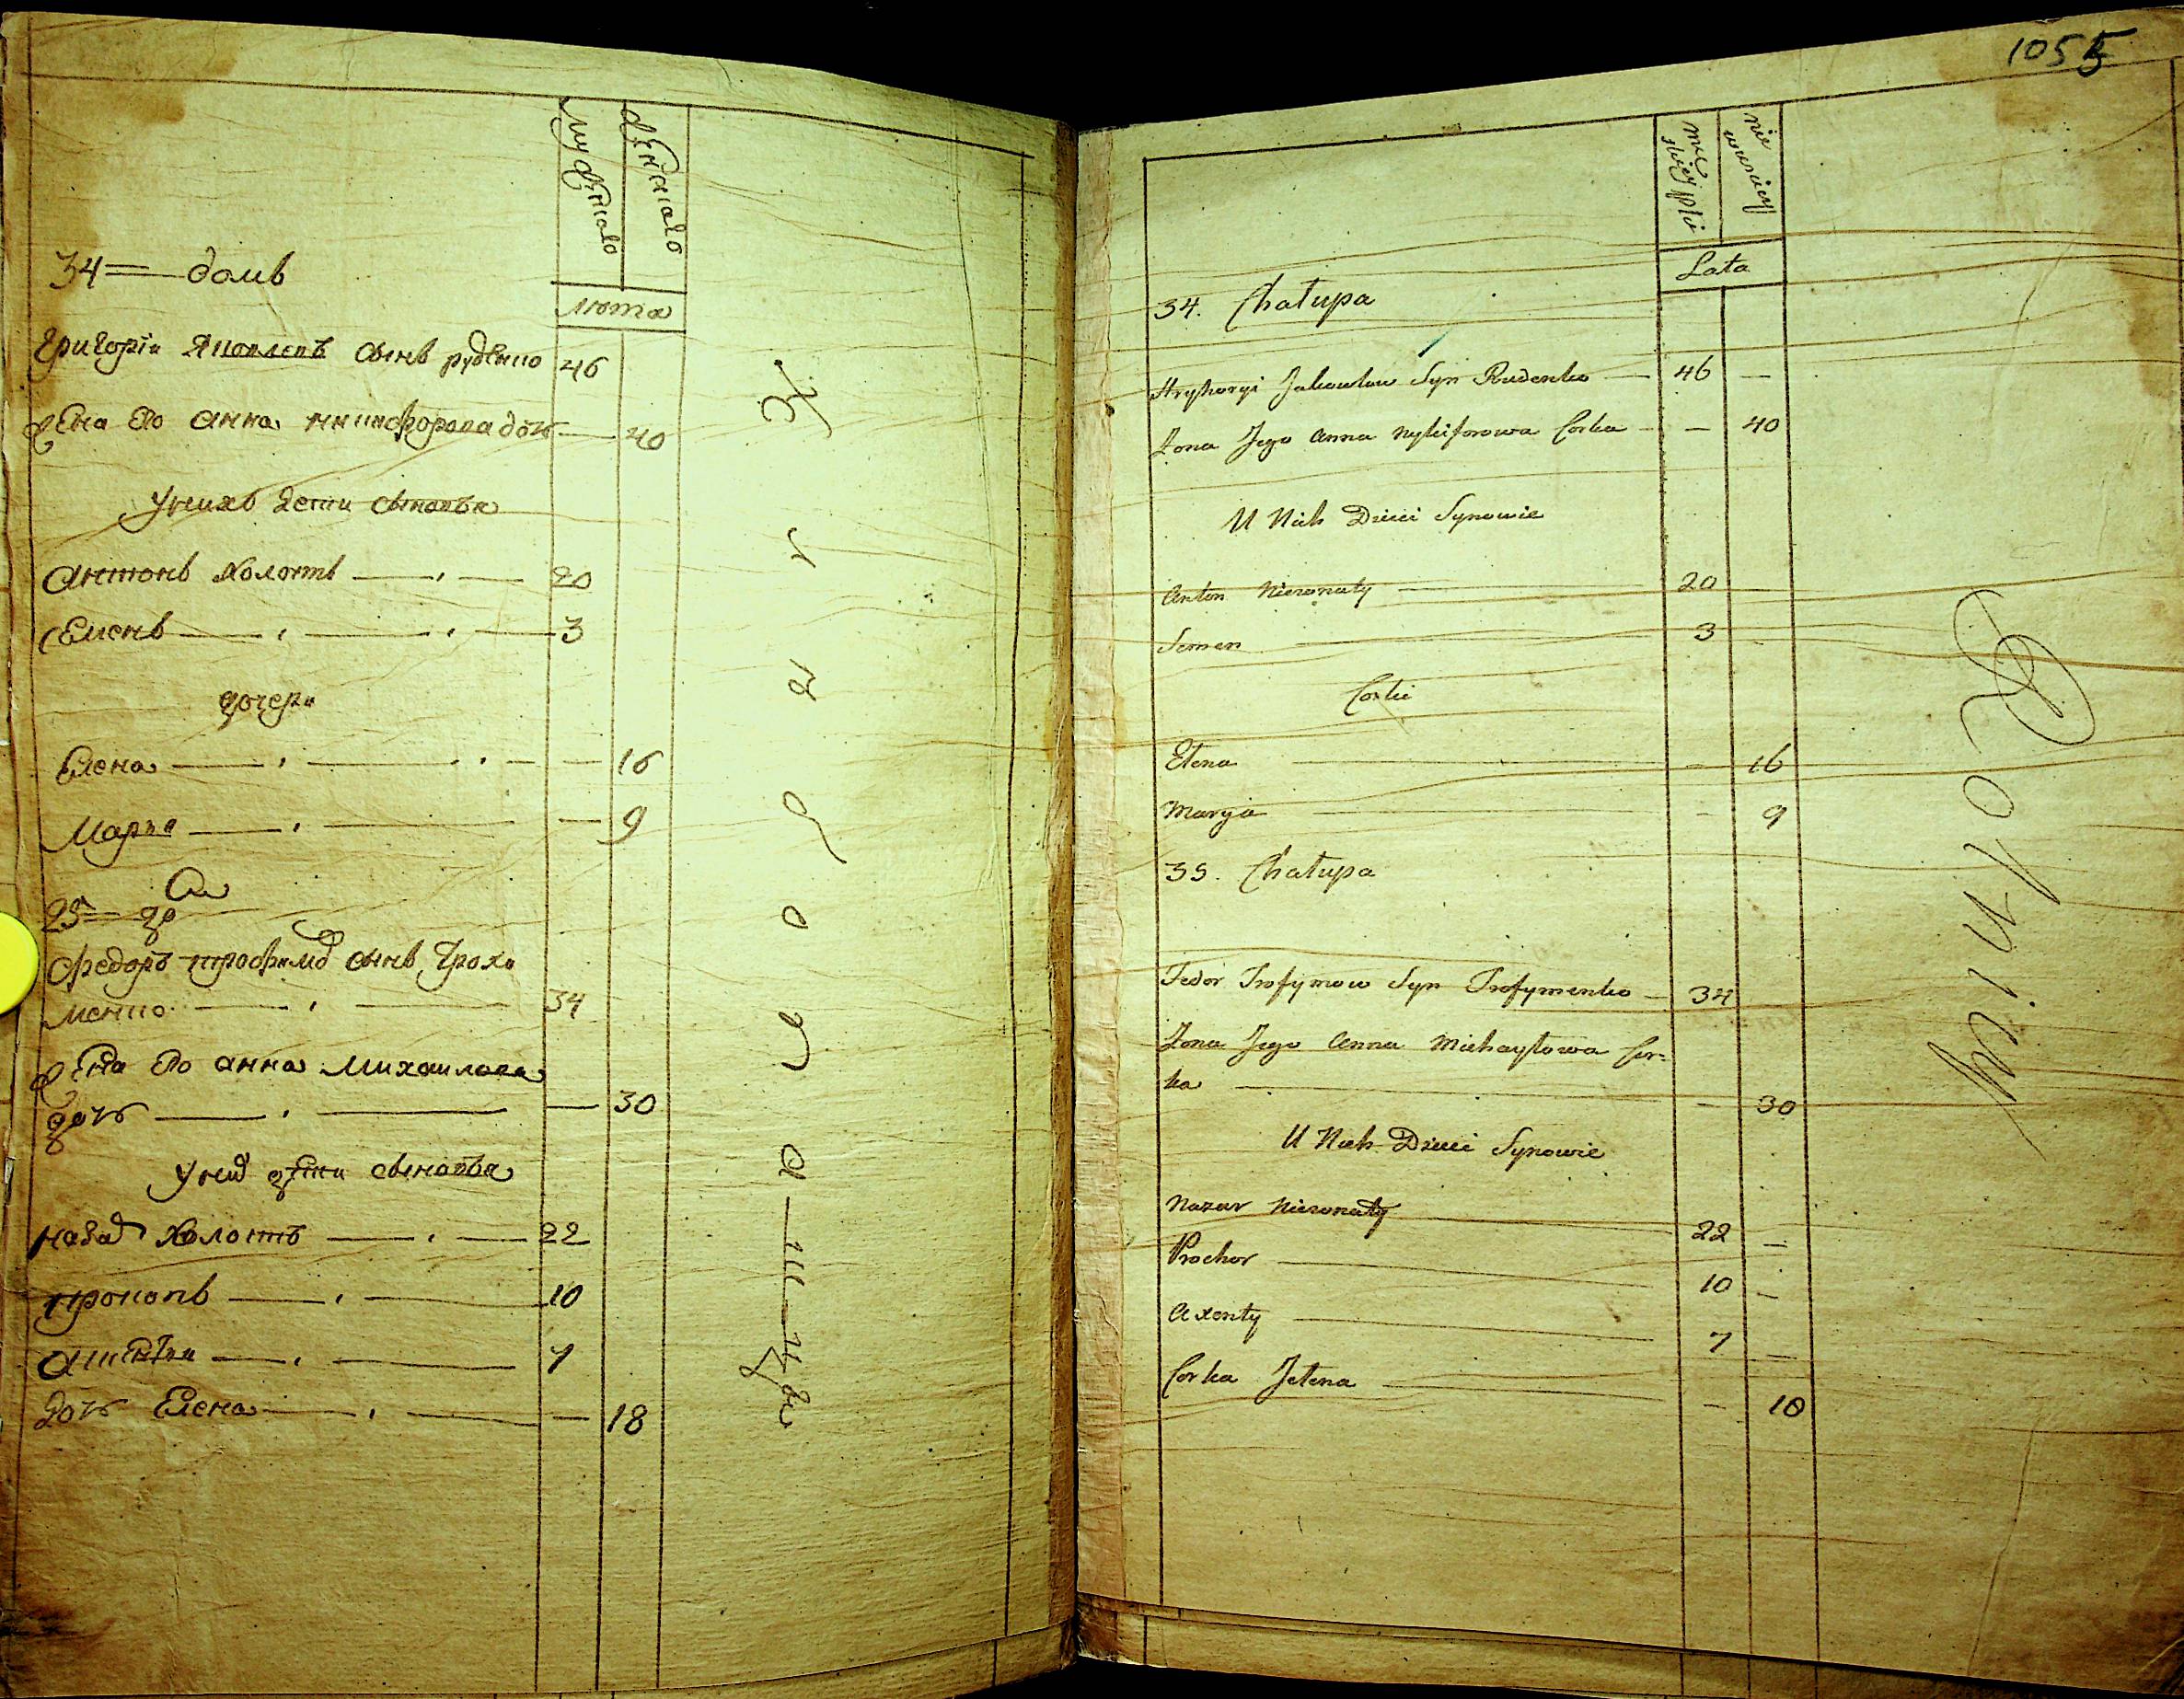 мужеска
женска
лѣта
34 = домъ
Григорій Яковлевъ сынъ руденко 46
жена его анна никифорова дочь — 40
у нихъ дети сыновья
антонъ холостъ — 20
Семенъ — 3
дочери
Елена — 16
Марья — 9
Федоръ трофимо сынъ
менко — 34
жена его анна Михаилова
дочь — 30
у нихъ дети сыновья
назар холостъ — 22
прокопъ — 10
7
дочь Елена — 18
1055
męzkiey płci
niewieściey
Lata
34. Chałupa
Hryhoryi Jakowlow Syn Rudenko — 46 —
Żona Jego Anna Nykiforowa Corka — — 40
U Nich Dzieci Synowie
Anton Nieżonaty — 20
Semen — 3
Corki
Elena — 16
Marya — 9
35. Chałupa
Fedor Trofymow Syn Trofymenko — 34
Żona Jego Anna Michayłowa Cor=
ka — 30
U Nich Dzieci Synowie
Nazar Nieżonaty 22 —
Prochor — 10 —
Axenty — 7 —
Corka Jelena — 18